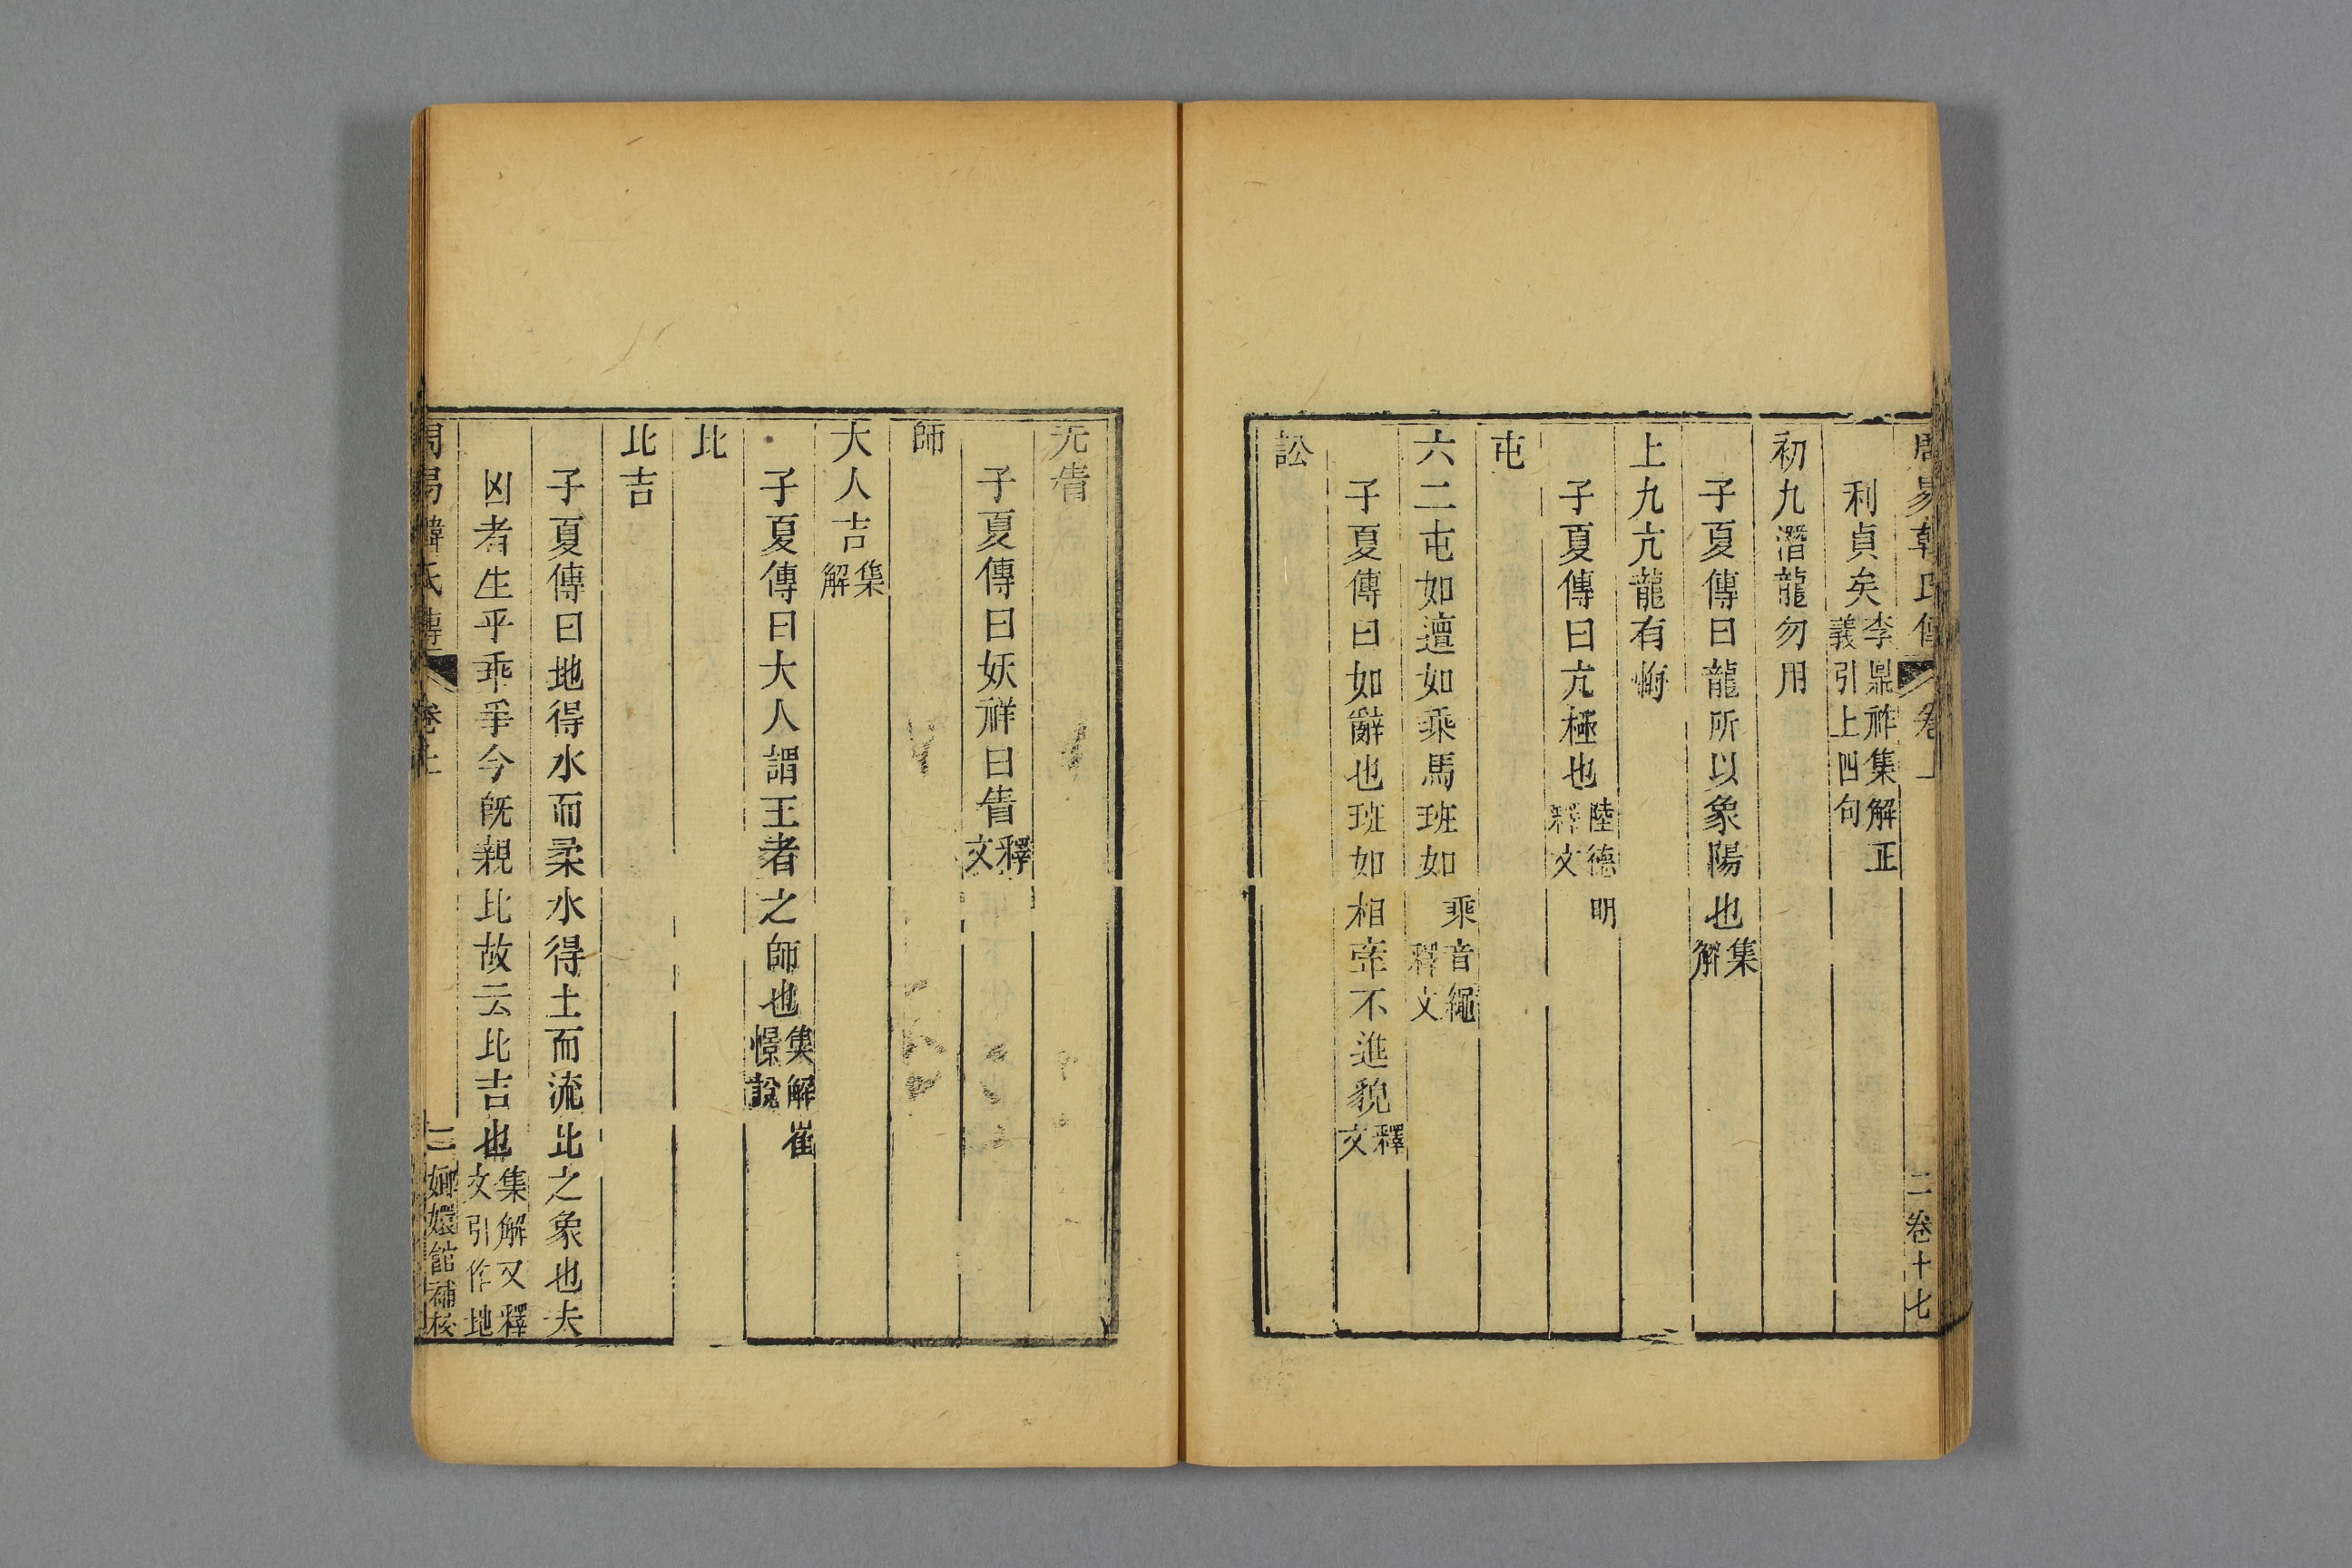 周易韓氏傳 卷上 二 卷十七
利貞矣李鼎祚集解正義引上四句
初九潛龍勿用
子夏傳曰龍所以象陽也集解
上九亢龍有悔
子夏傳曰亢極也陸德明釋文
屯
六二屯如邅如乘馬班如乘音繩釋文
子夏傳曰如辭也班如相牽不進貌釋文
訟
无眚
子夏傳曰妖祥曰眚釋文
師
大人吉集解
子夏傳曰大人謂王者之師也集解崔憬說
比
比吉
子夏傳曰地得水而柔水得土而流比之象也夫
凶者生乎乖爭今既親比故云比吉也集解又釋文引作地
周易韓氏傳 卷上 三 嫏嬛館補校